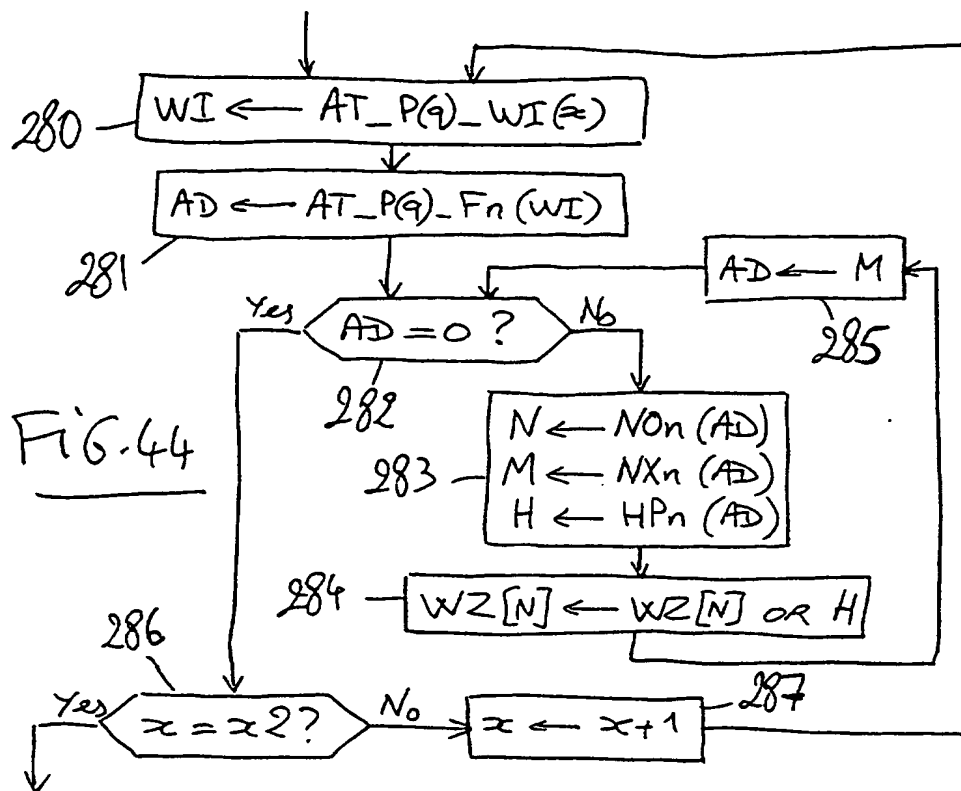 WI ← AT_P(q)_WI(x)
280
AD ← AT_P(q)_Fn(WI)
281
AD ← M
285
Yes
AD = 0 ?
No
282
FIG. 44
N ← NOn (AD)
M ← NXn (AD)
H ← HPn (AD)
283
284
WZ[N] ← WZ[N] OR H
286
Yes
x = x2?
No
x ← x+1
287